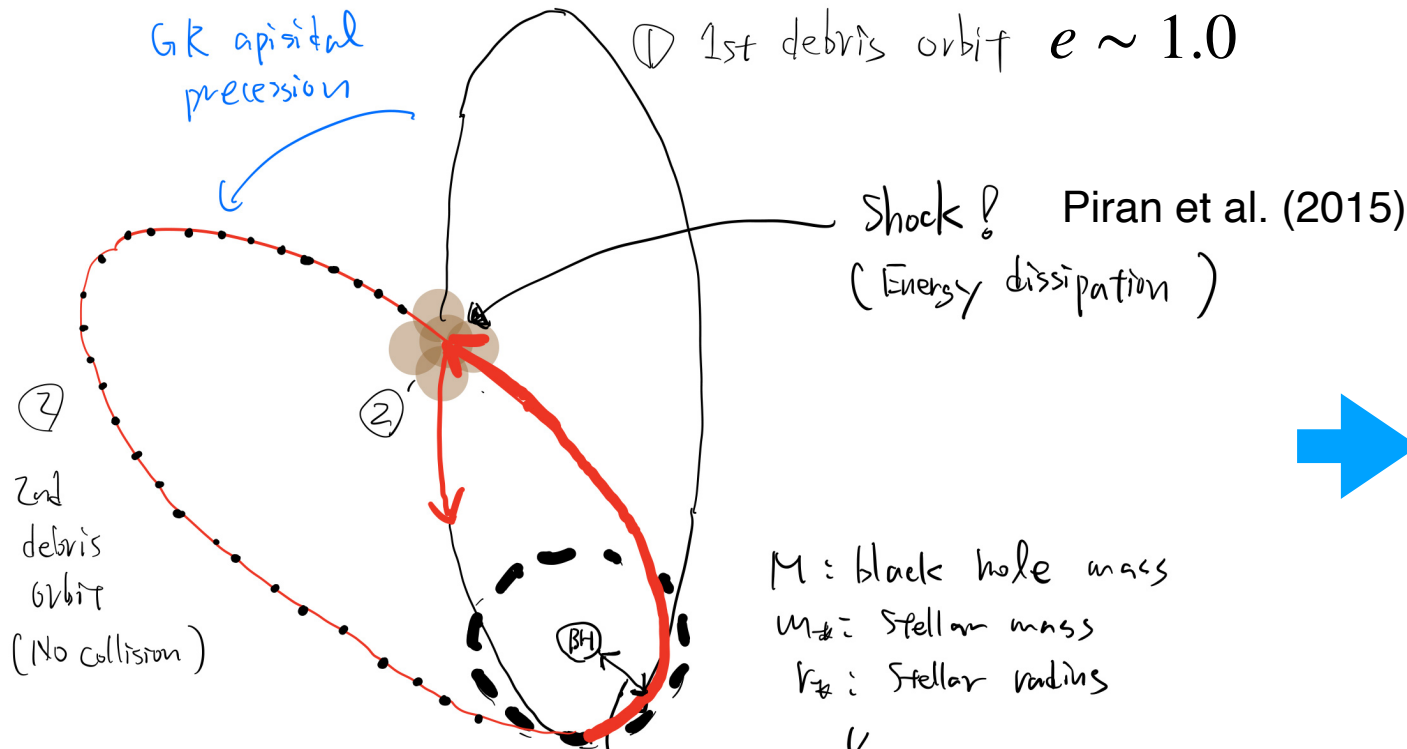 GR apisital
precession
① 1st debris orbit e ∼ 1.0
Shock! Piran et al. (2015)
(Energy dissipation)
②
②
2nd
debris
orbit
(No collision)
BH
M: black hole mass
m*: Stellar mass
r*: Stellar radius